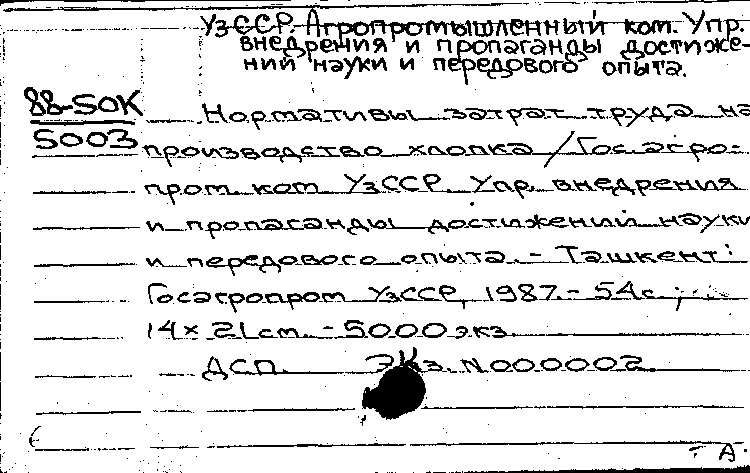 УзССР. Агропромышленный ком. Упр.
внедрения и пропаганды достиже-
ний науки и передового опыта.
88-50К
5003
Нормативы затрат труда на
производство хлопка / Гос. агро-
пром. ком. УзССР, Упр. внедрения
и пропаганды достижений науки
и передового опыта. - Ташкент:
Госагропром УзССР, 1987. - 54 с.;
14 × 21 см. - 5000 экз.
ДСП. Экз. N 000002.
А